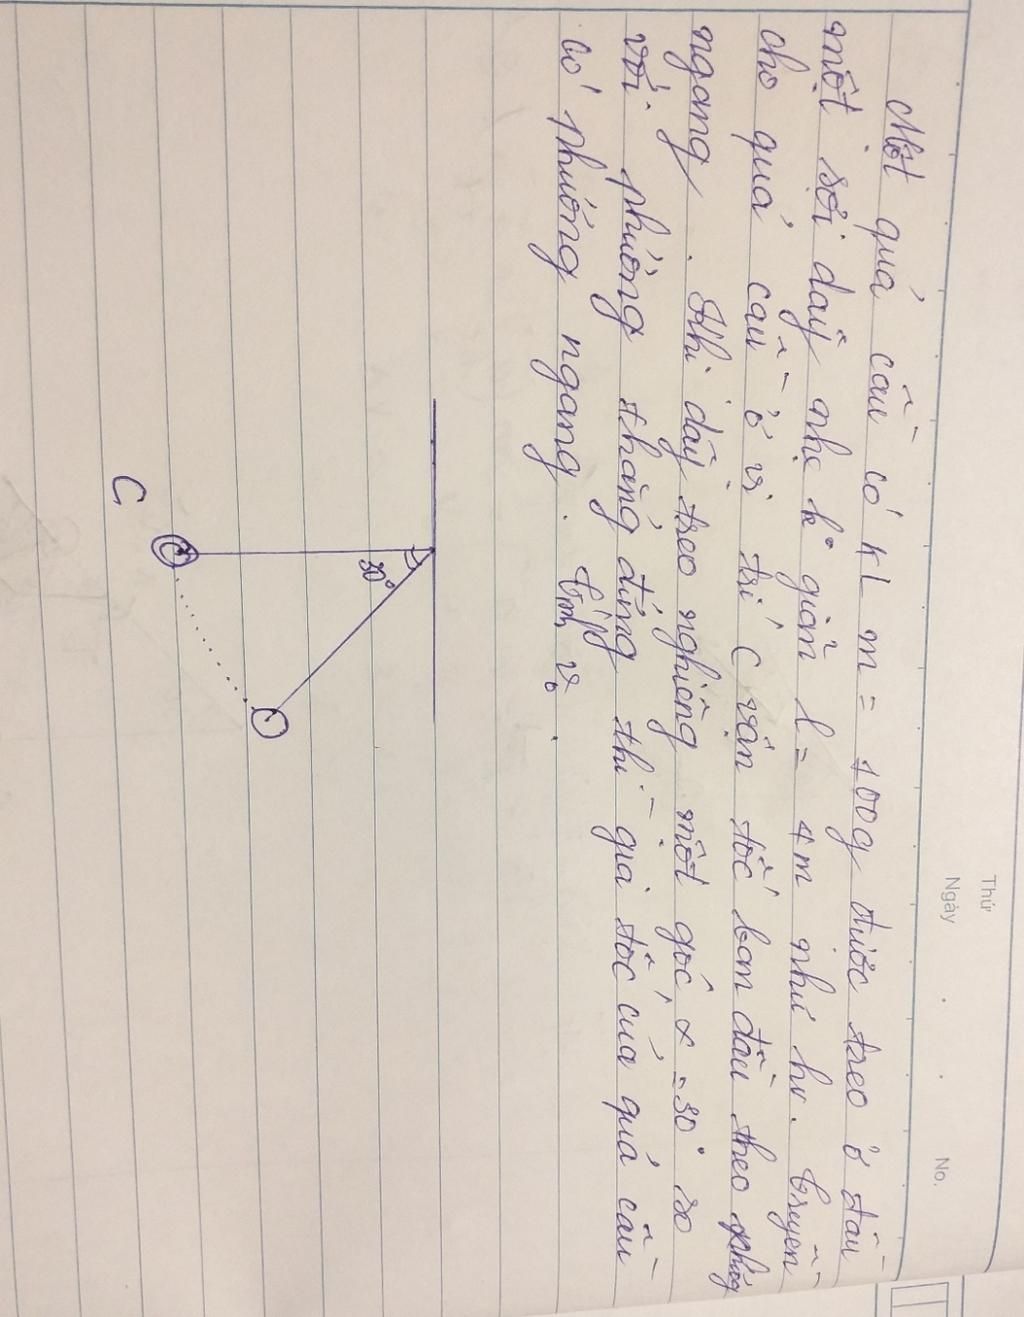 Thứ
Ngày
No.
Một quả cầu có kL m = 100g được treo ở đầu
một sợi dây nhẹ ko giãn l = 4m như hv. truyền
cho quả cầu ở vị trí C vận tốc ban đầu theo phương
ngang. Khi dây treo nghiêng một góc α = 30° so
với phương thẳng đứng thì gia tốc của quả cầu
có phương ngang. tính v₀.
30°
C